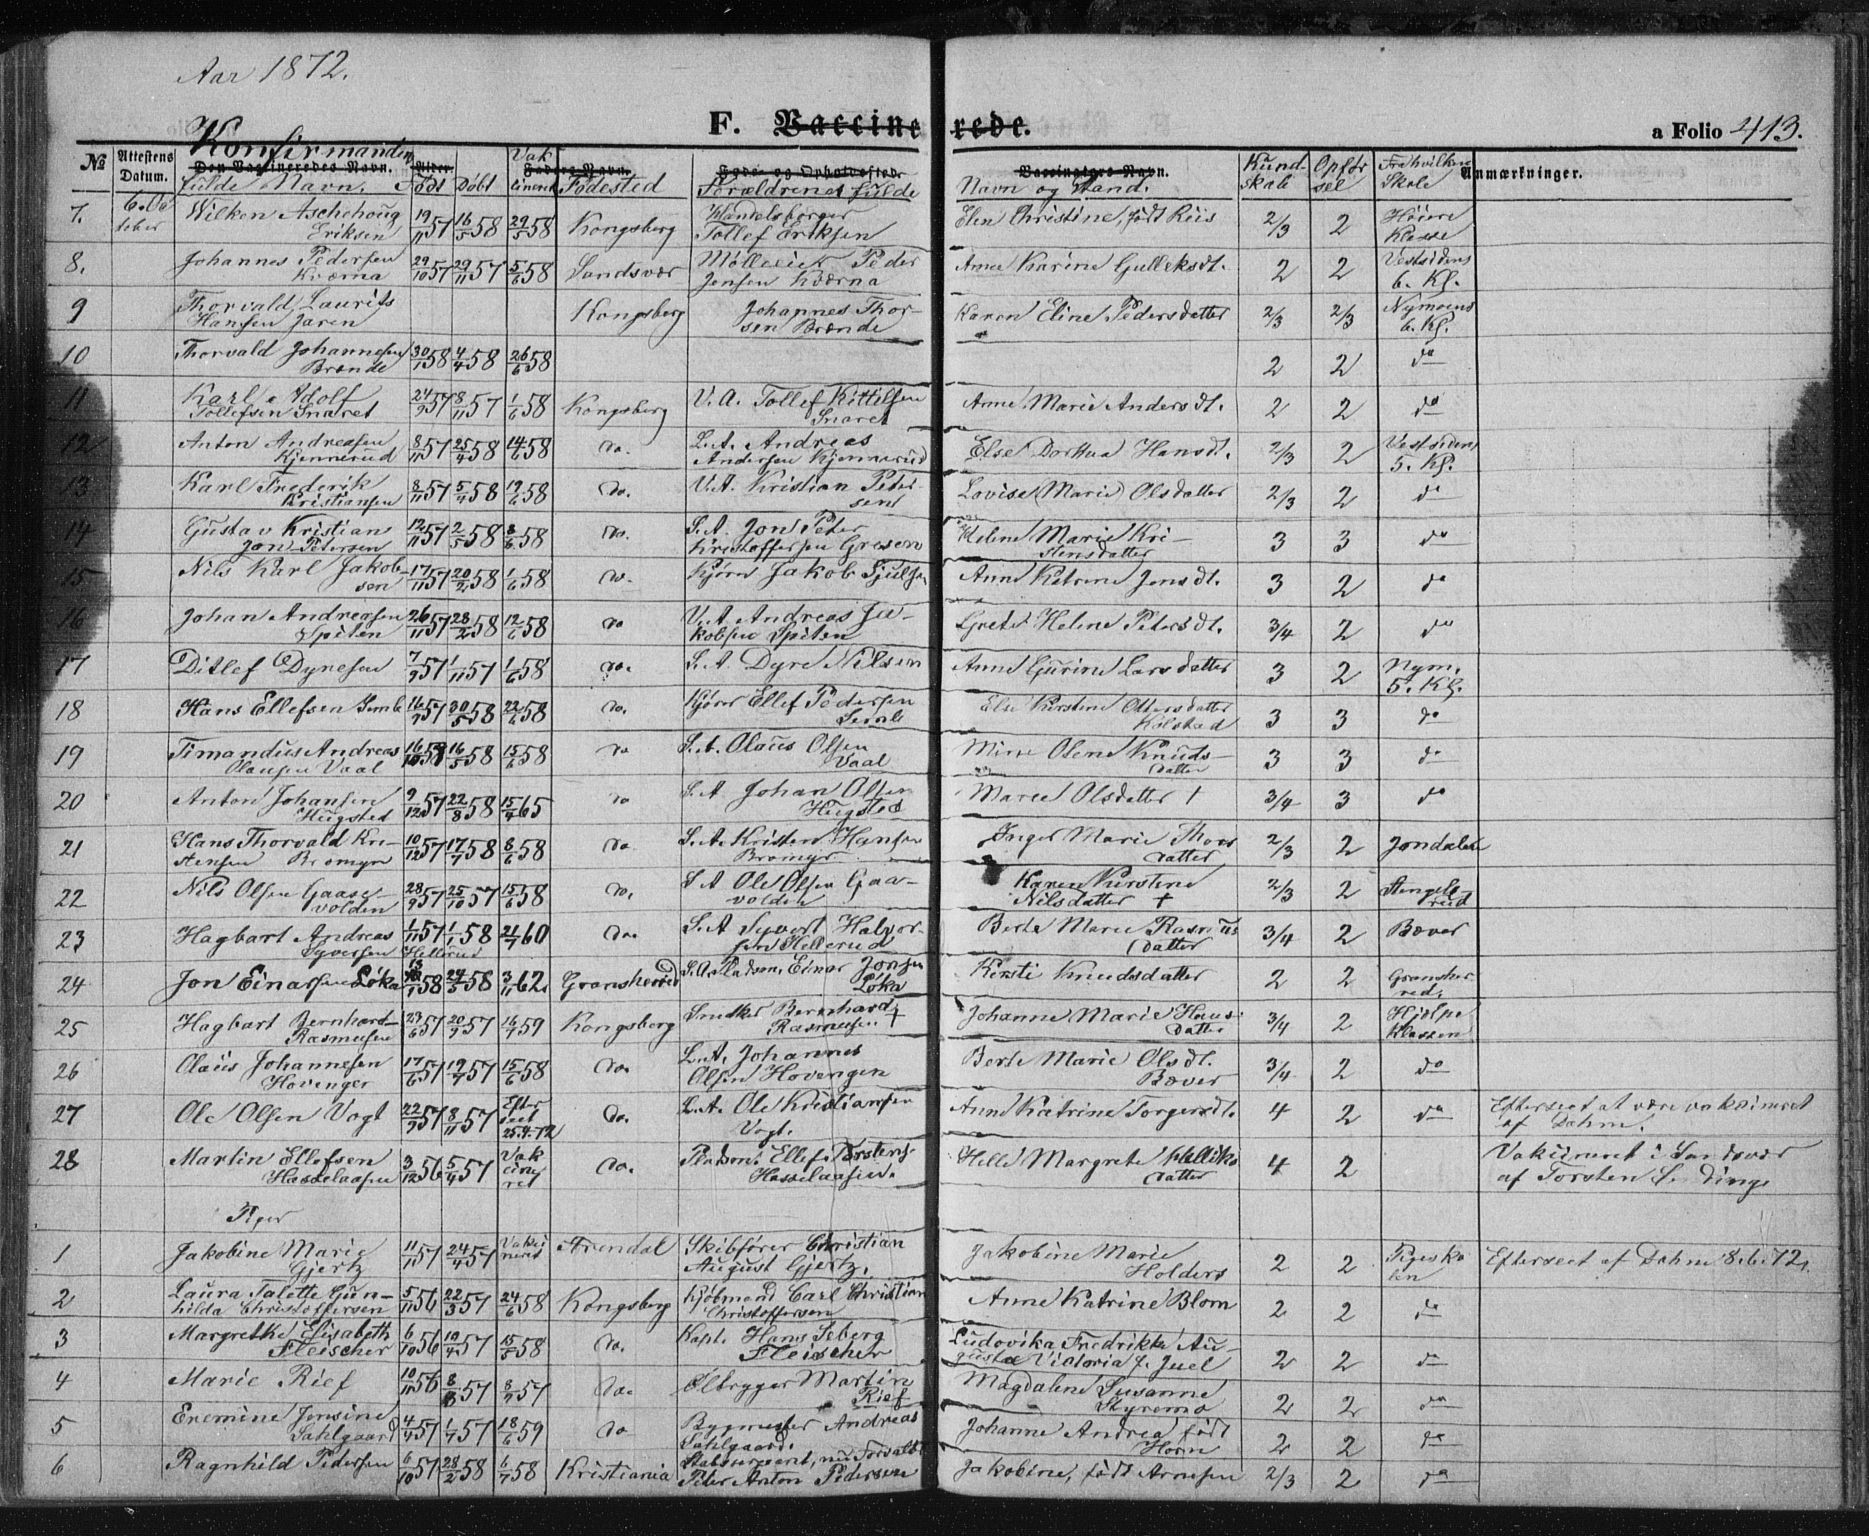 Aar 1872.
F. Vaccinerede.
a Folio 413.
Konfirmanden
№ Attestens Datum. Den Vaccineredes Navn. Alder. Vak Faders Navn. Føde- og Opholdssted. Vaccinateurs Navn. Kund- Opfør Frahvilken Anmærkninger.
fulde Navn. Født Døbt cineret Fødested Forældrenes fulde Navn og Stand. skab sel Skole
7. 6. Oc Wilken Aschehoug 19/11 57 16/5 58 29/5 58 Kongsberg Handelsborger Elen Christine, født Riis 2/3 2 Høiere
tober Eriksen Tollef Eriksen Klasse
8. Johannes Pedersen 29/10 57 29/11 57 5/6 58 Sandsvær Møller Peder Anne Karine Gulleksdt. 2 2 Vestsidens
Kværna Jensen Kværna 6. Kl.
9 Thorvald Laurits Kongsberg Johannes Thor- Karen Eline Pedersdatter 2/3 2/3 Nymoens
Hansen Jaren sen Brænde 6. Kl.
10 Thorvald Johannesen 30/1 58 4/4 58 26/6 58 2 2 do
Brænde
11 Karl Adolf 24/9 57 8/11 57 1/6 58 Kongsberg V. A. Tollef Kittilsen Anne Marie Andersdt. 2 2 do
Tollefsen Snaret Snaret
12 Anton Andreasen 8/11 57 25/4 58 14/ 58 do. L. A. Andreas Else Dorthea Hansdt. 2/3 2 Vestsidens
Kjennerud Andersen Kjennerud 5. Kl.
13 Karl Frederik 8/11 57 5/4 58 19/6 58 do. V. A. Kristian Peter- Lovise Marie Olsdatter 2/3 2 do
Kristiansen sen
14 Gustav Kristian 12/11 57 2/5 58 8/6 58 do. S. A. Jon Peter Helene Marie Kri- 3 3 do
Jon Petersen Kristoffersen Gresen stensdatter
15 Nils Karl Jakob- 17/11 57 20/2 58 1/6 58 do. Kjører Jakob Sjulsen Anne Katrine Jensdt. 3 2 do
sen
16 Johan Andreasen 26/11 57 28/2 58 12/6 58 do V. A. Andreas Ja- Grete Helene Petersdt. 3/4 2 do
Spiten kobsen Spiten
17 Ditlef Dyresen 7/9 57 1/11 57 1/6 58 do. S. A. Dyre Nilsen Anne Gurine Larsdatter 3 2 Nym.
5. Kl.
18 Hans Ellefsen 16/9 57 30/5 58 22/6 58 do. Kjører Ellef Pedersen Else Kirstine Ottersdatter 3 3 do
Kolstad
19 Timandus Andreas 16/5 58 15/6 58 do S. A. Olaus Olsen Olene Knuds- 3 3 do
Olausen Vaal Vaal datter
20 Anton Johansen 9/12 57 22/8 58 15/4 65 do S. A Johan Olsen Maren Olsdatter † 3/4 3 do
Hugsted Hugsted
21 Hans Thorvald Kri- 10/12 57 17/7 58 8/6 58 do S. A. Kristen Hansen Inger Marie Thors 2/3 2 Jondalen
stensen Bromyr Bromyr datter
22 Nils Olsen Gaase- 28/9 57 25/10 57 15/6 58 do. S A Ole Olsen Gaa- Karen Kirstine 2/3 2 Stengels
volden volden Nilsdatter † rud
23 Hagbart Andreas 1/11 57 1/1 58 21/7 60 do. S. A Syvert Halvor- Berte Marie Rasmus 3/4 2 Bæver
Syversen Hellerud sen Hellerud datter
24 Jon Einarsen Løka 58 24/5 58 3/11 62. Gransherred S. A. Pladsm. Einar Jonsen Kirsti Knudsdatter 2 2 Gransher-
Løka red.
25 Hagbart Bernhard 23/6 57 20/9 57 16/7 59 Kongsberg Snedker Bernhard Johanne Marie Hans- 3/4 2 Hjælpe
Rasmusen Rasmusen † datter klassen
26 Olaus Johannesen 17/6 57 19/7 57 15/6 58 do. L. A. Johannes Berte Marie Olsdt. 3/4 2 do
Hovengen Olsen Hovengen Bæver
27 Ole Olsen Vogt 22/9 57 8/11 57 Efter do. L. A. Ole Kristiansen Anne Katrine Torgersdt. 4 2 do Efterseet at være vaksineret
seet 25.9.72 Vogt. af Dahm.
28 Martin Ellefsen 3/12 56 5/4 57 Vak do. Pladsm. Ellef Torstens Helle Margrete 4 2 Vaksineret i Sandsvær
Hasselaasen cine ret Hasselaasen. datter af Torsten
Piger
1 Jakobine Marie 11/1 57 24/4 57 Vaksi Arendal Skibfører Christian Jakobine Marie 2 2 Pigesko Efterseet af Dahm 8.6.72.
Gjertz neret August Gjertz. Holders len
2 Laura Talette Gun- 5/11 56 22/3 57 24/6 58 Kongsberg Kjøbmand Carl Christian Anne Katrine Blom 2 2 do
hilda Christoffersen Christoffersen
3 Margrethe Elisabeth 6/10 56 19/4 57 15/5 58 do. Kapt. Hans Seberg Ludovika Fredrikke Au- 2 2 do
Fleischer Fleischer gusta Victoria f. Juel
4 Marie Rief 10/11 56 57 8/7 57 do. Ølbrygger Martin Magdalene Susanne 2 2 do
Rief Styremo
5 Eremine Jensine 4/4 57 1/7 57 18/6 59 do Bygmester Andreas Johanne Andrea født 2 2 do
Sahlgaard Sahlgaard. Horn
6 Ragnhild Pedersen 6/10 57 28/2 58 6/7 58 Kristiania nu Forvalter Jakobine, født Arnesen 2/3 2 do
Peter Anton Pedersen